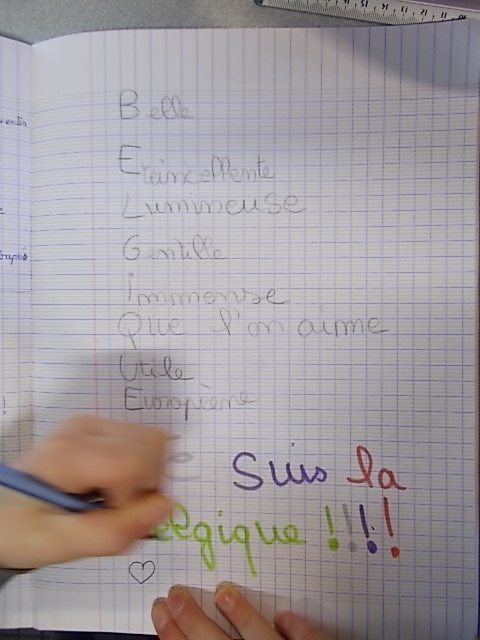 Belle
Eteincellente
Lumineuse
Gentille
immense
Que l'on aime
Utile
Européene
e suis la
elgique !!!!